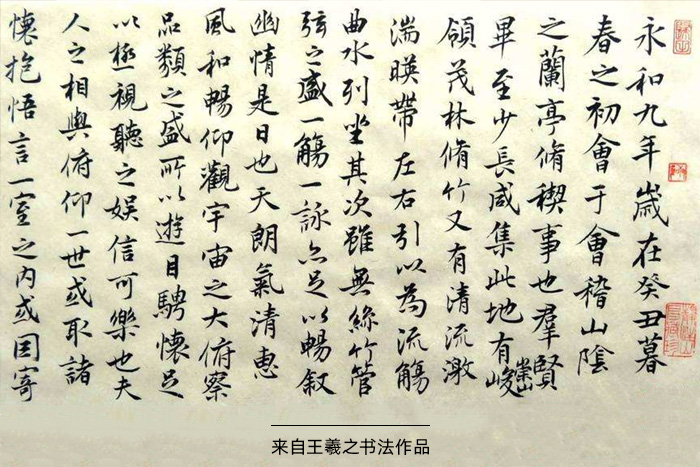 永和九年歲在癸丑暮
春之初會于會稽山陰
之蘭亭脩稧事也羣賢
畢至少長咸集此地有崇山峻
領茂林脩竹又有清流激
湍暎帶左右引以為流觴
曲水列坐其次雖無絲竹管
弦之盛一觴一詠亦足以暢叙
幽情是日也天朗氣清惠
風和暢仰觀宇宙之大俯察
品類之盛所以遊目騁懷足
以極視聽之娱信可樂也夫
人之相與俯仰一世或取諸
懷抱悟言一室之内或因寄
来自王羲之书法作品